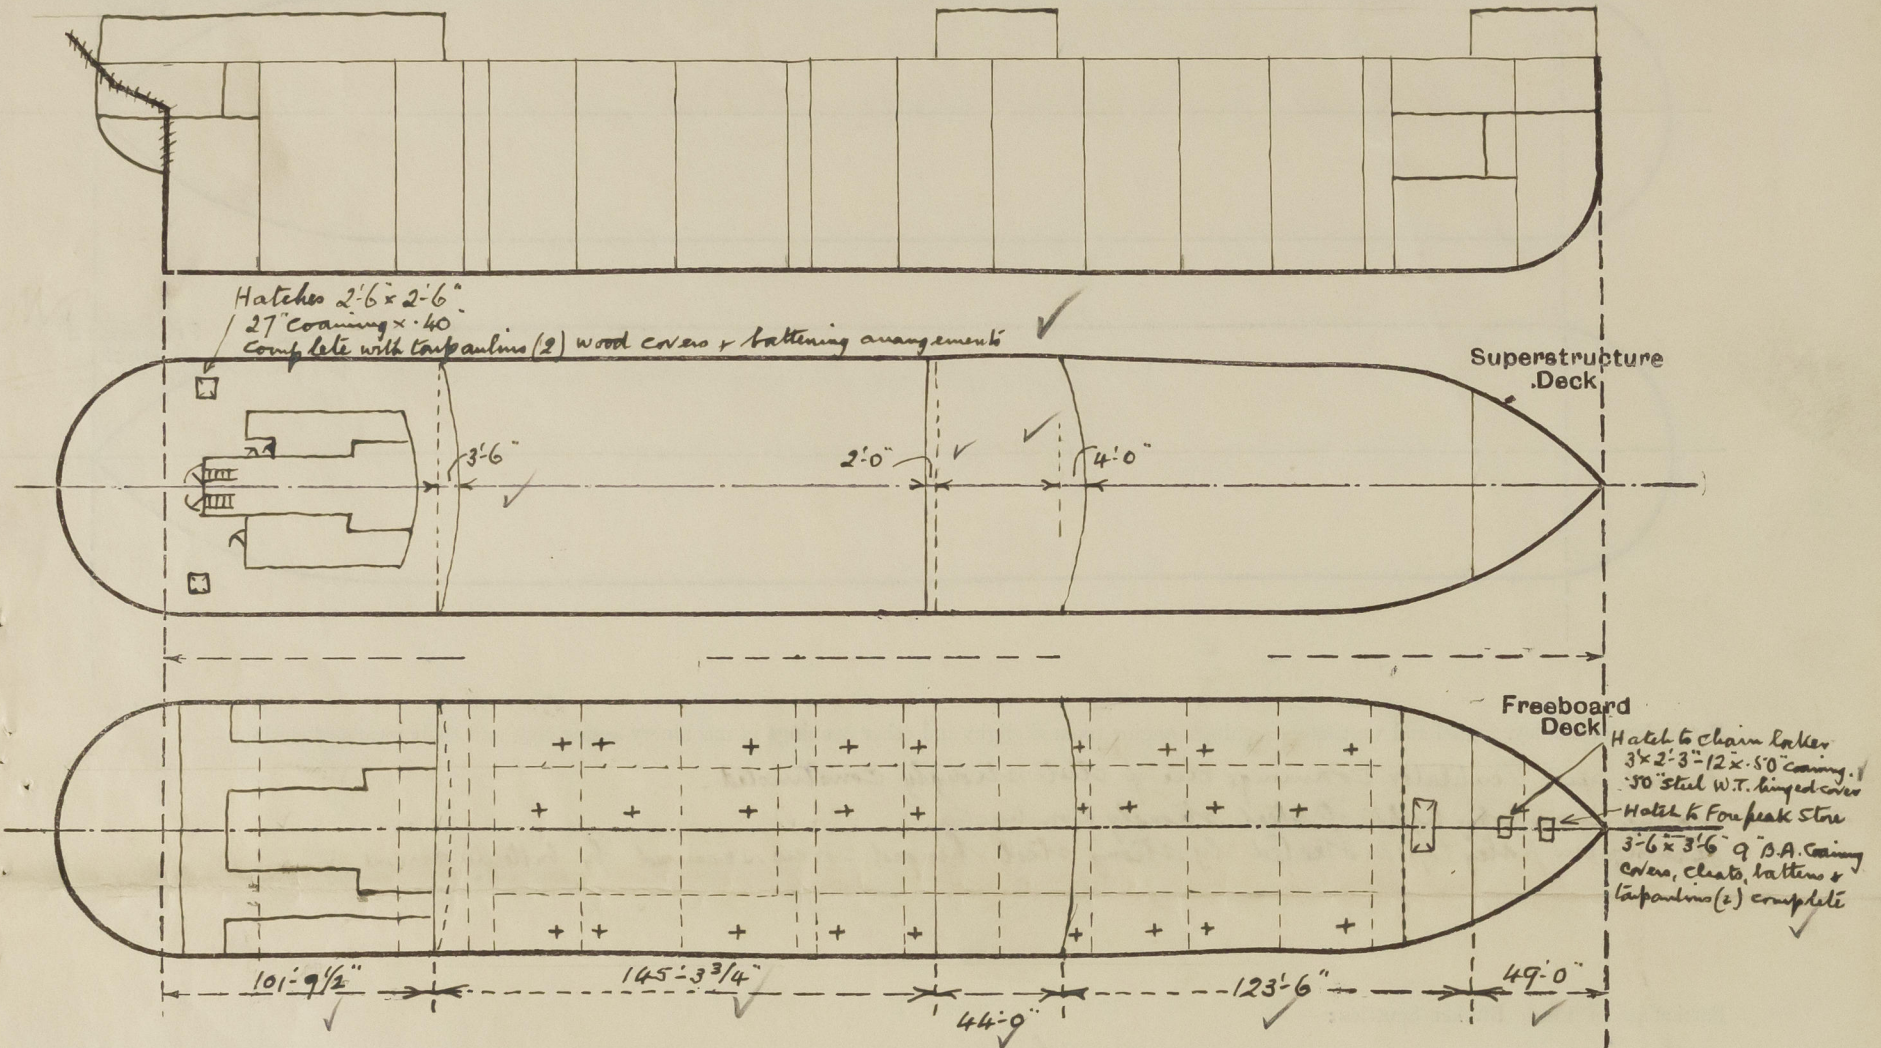 Hatches 2'-6" x 2'-6"
27" coaming x .40"
complete with tarpaulins (2) wood covers & battening arrangements
Superstructure
Deck
3'-6"
2'-0"
4'-0"
Freeboard
Deck
Hatch to chain locker
3' x 2'-3" - 12" x .50" coaming.
.50" steel W.T. hinged cover
Hatch to Forepeak Store
3'-6" x 3'-6" 9" B.A. Coaming
covers, cleats, battens &
tarpaulins (2) complete
101'-9 1/2"
145'-3 3/4"
44'-0"
123'-6"
49'-0"